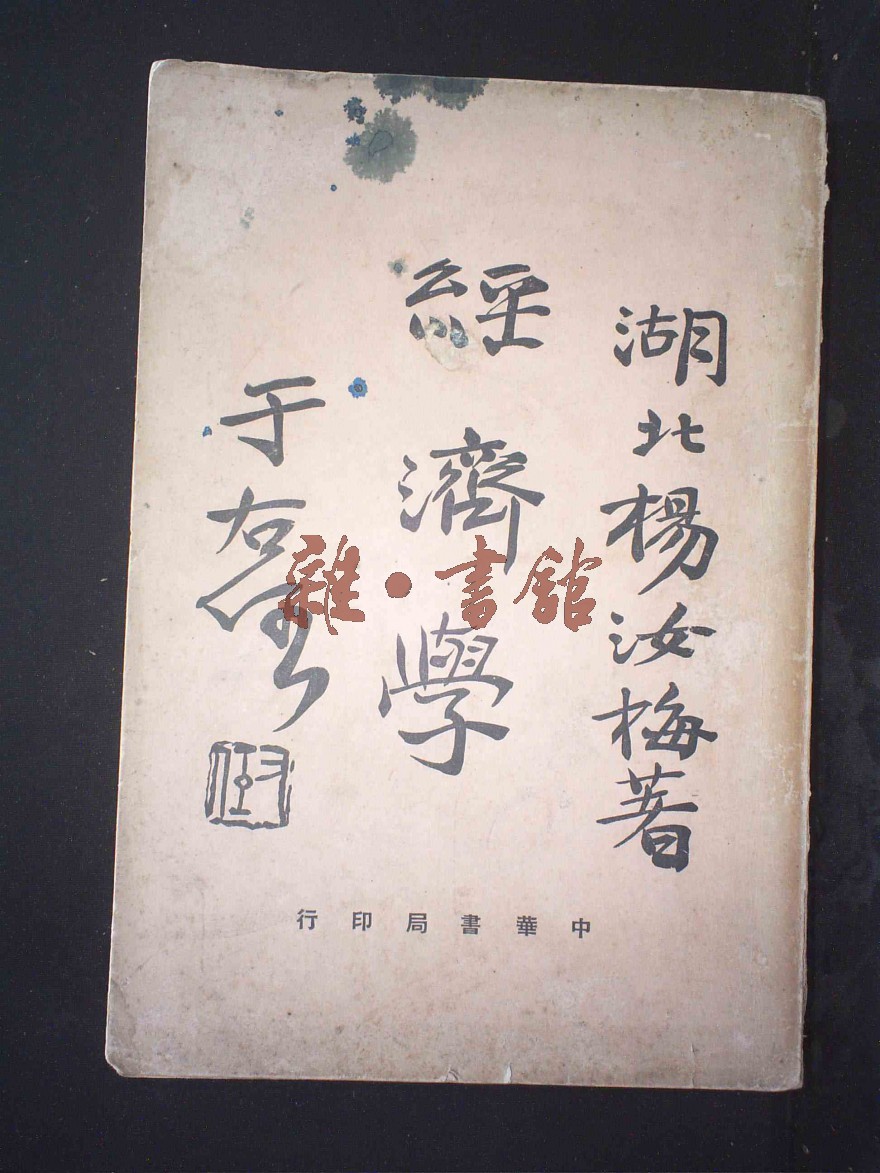 湖北楊汝梅著
經濟學
于右任
中華書局印行
雜·書館